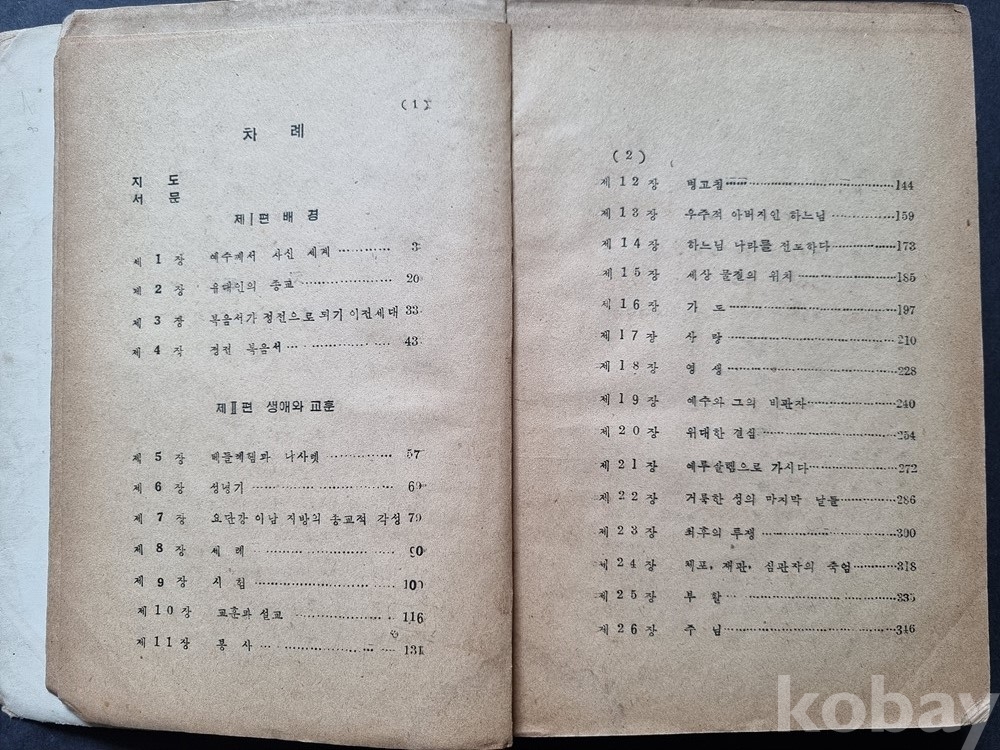 (1)
차 례
지 도
서 문
제Ⅰ편 배 경
제 1 장 예수께서 사신 세계 ············ 3
제 2 장 유대인의 종교 ·················· 20
제 3 장 복음서가 정전으로 되기 이전세대 33
제 4 장 정전 복음서 ·················· 43
제Ⅱ편 생애와 교훈
제 5 장 베들레헴과 나사렛 ············ 57
제 6 장 성년기 ························ 69
제 7 장 요단강 이남 지방의 종교적 각성 79
제 8 장 세 례 ························ 90
제 9 장 시 험 ························ 100
제 10 장 교훈과 설교 ·················· 116
제 11 장 봉 사 ························ 131
(2)
제 12 장 ························ 144
제 13 장 우주적 아버지인 하느님 ············ 159
제 14 장 하느님 나라를 전도하다 ············ 173
제 15 장 세상 물결의 위치 ·················· 185
제 16 장 기 도 ························ 197
제 17 장 사 랑 ························ 210
제 18 장 영 생 ························ 228
제 19 장 예수와 그의 비판자 ············ 240
제 20 장 위대한 결심 ·················· 254
제 21 장 예루살렘으로 가시다 ············ 272
제 22 장 거룩한 성의 마지막 날들 ········· 286
제 23 장 최후의 투쟁 ·················· 300
제 24 장 체포, 재판, 심판자의 죽엄 ········· 318
제 25 장 부 활 ························ 335
제 26 장 주 님 ························ 346
kobay